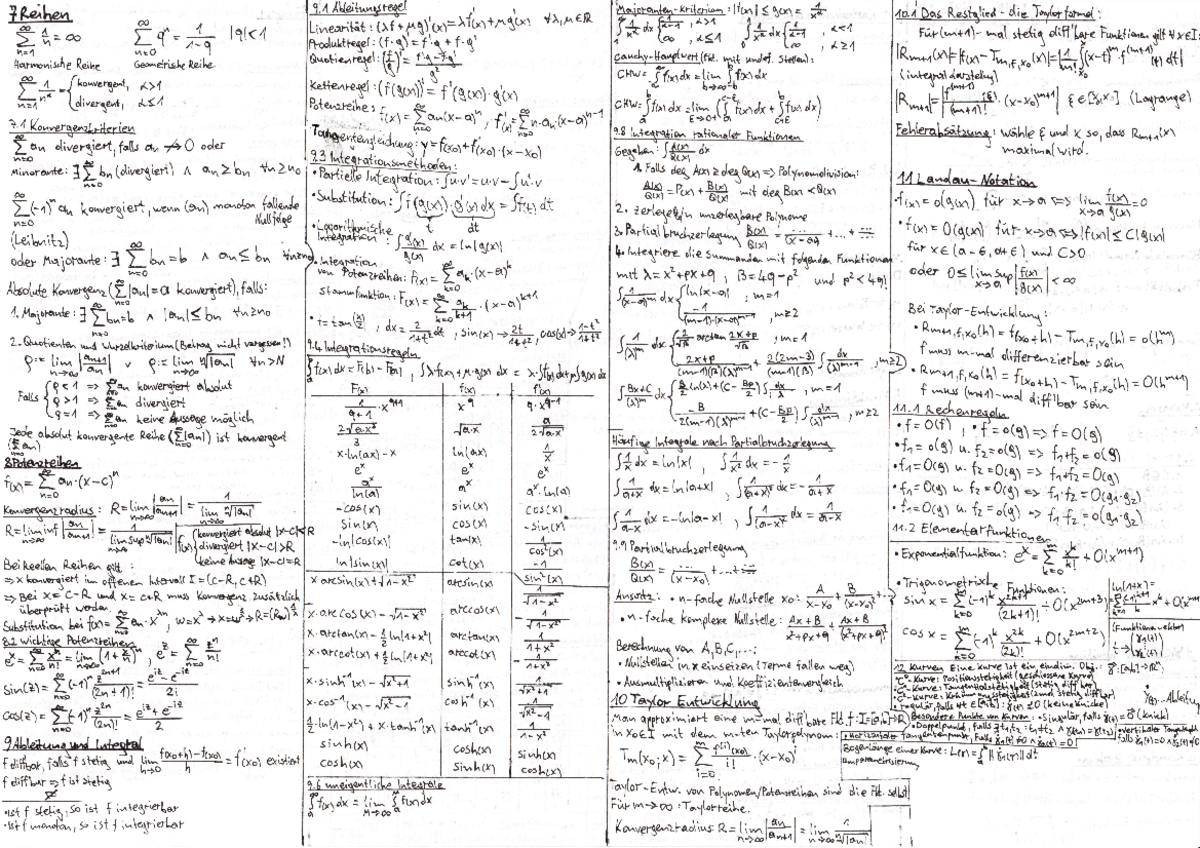 7 Reihen
∑_{n=1}^∞ 1/n = ∞   ∑_{n=0}^∞ q^n = 1/(1-q)   |q|<1
Harmonische Reihe   Geometrische Reihe
∑_{n=1}^∞ 1/n^α = { konvergent, α>1
divergent, α≤1
7.1 Konvergenzkriterien
∑_{n=0}^∞ an divergiert, falls an ↛ 0 oder
Minorante: ∃ ∑_{n=0}^∞ bn (divergiert) ∧ an ≥ bn ∀n≥n0
∑_{n=0}^∞ (-1)^n an konvergiert, wenn (an) monoton fallende
Nullfolge
(Leibnitz)
oder Majorante: ∃ ∑_{n=0}^∞ bn = b ∧ an ≤ bn ∀n≥n0
Absolute Konvergenz (∑_{n=0}^∞ |an| = a konvergiert), falls:
1. Majorante: ∃ ∑_{n=0}^∞ bn = b ∧ |an| ≤ bn ∀n≥n0
2. Quotienten und Wurzelkriterium (Betrag nicht vergessen!)
ρ := lim_{n→∞} |an+1/an| ∨ ρ := lim_{n→∞} ⁿ√|an| ∀n>N
Falls { ρ<1 ⇒ ∑ an konvergiert absolut
ρ>1 ⇒ ∑ an divergiert
ρ=1 ⇒ ∑ an keine Aussage möglich
Jede absolut konvergente Reihe (∑_{n=0}^∞ |an|) ist konvergent
(∑_{n=0}^∞ an)
8 Potenzreihen
f(x) = ∑_{n=0}^∞ an·(x-c)^n
Konvergenzradius: R = lim_{n→∞} |an/an+1| = 1/(lim_{n→∞} ⁿ√|an|)
R = lim inf_{n→∞} |an/an+1| = 1/(lim sup_{n→∞} ⁿ√|an|)   f(x) { konvergiert absolut |x-c|<R
divergiert |x-c|>R
keine Aussage |x-c|=R
Bei reellen Reihen gilt:
⇒ x konvergiert im offenen Intervall I=(c-R, c+R)
⇒ Bei x=c-R und x=c+R muss Konvergenz zusätzlich
überprüft werden.
8.2 wichtige Potenzreihen
e^x = ∑_{n=0}^∞ x^n/n! = lim_{n→∞} (1+x/n)^n, e^z = ∑_{n=0}^∞ z^n/n!
sin(z) = ∑_{n=0}^∞ (-1)^n z^{2n+1}/(2n+1)! = (e^{iz} - e^{-iz})/2i
cos(z) = ∑_{n=0}^∞ (-1)^n z^{2n}/(2n)! = (e^{iz} + e^{-iz})/2
9 Ableitung und Integral
f diffbar, falls f stetig und lim_{h→0} (f(x0+h)-f(x0))/h = f'(x0) existiert
f diffbar ⇒ f ist stetig
• ist f stetig, so ist f integrierbar
• ist f monoton, so ist f integrierbar
9.1 Ableitungsregel
Linearität: (λf+μg)'(x) = λf'(x)+μg'(x) ∀λ,μ∈ℝ
Produktregel: (f·g)' = f'·g + f·g'
Quotienregel: (f/g)' = (f'·g - f·g')/g²
Kettenregel: (f(g(x)))' = f'(g(x))·g'(x)
Potenzreihe: f(x) = ∑_{n=0}^∞ an(x-a)^n, f'(x) = ∑_{n=1}^∞ n·an·(x-a)^{n-1}
Tangentengleichung: y = f(x0)+f'(x0)·(x-x0)
9.3 Integrationsmethoden:
• Partielle Integration: ∫u·v' = u·v - ∫u'·v
• Substitution: ∫f(g(x))·g'(x) dx = ∫f(t) dt
t   dt
• Logarithmische
Integration: ∫ g'(x)/g(x) dx = ln|g(x)|
• Integration
von Potenzreihen: f(x) = ∑_{k=0}^∞ ak·(x-a)^k
Stammfunktion: F(x) = ∑_{k=0}^∞ ak/(k+1)·(x-a)^{k+1}
• t = tan(x/2), dx = 2/(1+t²) dt, sin(x) → 2t/(1+t²), cos(x) → (1-t²)/(1+t²)
9.4 Integrationsregeln
∫_a^b f(x) dx = F(b)-F(a), ∫λf(x)+μ·g(x) dx = λ·∫f(x) dx + μ∫g(x) dx
F(x)   f(x)   f'(x)
1/(q+1)·x^{q+1}   x^q   q·x^{q-1}
2√(a·x³)/3   √(a·x)   a/(2√(a·x))
x·ln(ax)-x   ln(ax)   1/x
e^x   e^x   e^x
a^x/ln(a)   a^x   a^x·ln(a)
-cos(x)   sin(x)   cos(x)
sin(x)   cos(x)   -sin(x)
-ln|cos(x)|   tan(x)   1/cos²(x)
ln|sin(x)|   cot(x)   -1/sin²(x)
x·arcsin(x)+√(1-x²)   arcsin(x)   1/√(1-x²)
x·arccos(x)-√(1-x²)   arccos(x)   -1/√(1-x²)
x·arctan(x)-½ln|1+x²|   arctan(x)   1/(1+x²)
x·arccot(x)+½ln|1+x²|   arccot(x)   -1/(1+x²)
x·sinh⁻¹(x)-√(x²+1)   sinh⁻¹(x)   1/√(x²+1)
x·cos⁻¹(x)-√(x²-1)   cosh⁻¹(x)   1/√(x²-1)
½·ln(1-x²)+x·tanh⁻¹(x)   tanh⁻¹(x)   1/(1-x²)
sinh(x)   cosh(x)   sinh(x)
cosh(x)   sinh(x)   cosh(x)
9.6 uneigentliche Integrale
∫_a^∞ f(x) dx = lim_{M→∞} ∫_a^M f(x) dx
Majoranten-Kriterium: |f(x)| ≤ g(x) = 1/x^α
∫_1^∞ 1/x^α dx { , α>1   ∫_0^1 1/x^α dx { , α<1
∞, α≤1   ∞, α≥1
Cauchy-Hauptwert (Fkt. mit undef. Stellen):
CHW = ∫f(x) dx = lim_{b→∞} ∫_{-b}^b f(x) dx
CHW: ∫_a^b f(x) dx = lim_{ε→0+} (∫_a^{c-ε} f(x) dx + ∫_{c+ε}^b f(x) dx)
9.8 Integration rationaler Funktionen
Gegeben: ∫ A(x)/Q(x) dx
1. Falls deg A(x) ≥ deg Q(x) ⇒ Polynomdivision:
A(x)/Q(x) = P(x) + B(x)/Q(x) mit deg B(x) < Q(x)
2. zerlege Q(x) in unzerlegbare Polynome
3. Partialbruchzerlegung B(x)/Q(x) = .../(x-a_n) + ... + ...
4. Integriere die Summanden mit folgenden Funktionen
mit λ = x²+px+q, β = 4q-p² und p²<4q!
∫ 1/(x-a)^m dx { ln|x-a|, m=1
-1/((m-1)(x-a)^{m-1}), m≥2
∫ 1/(λ)^m dx { 2/√β arctan (2x+p)/√β, m=1
(2x+p)/((m-1)(β)(λ)^{m-1}) + 2(2m-3)/((m-1)(β)) ∫ dx/(λ)^{m-1}, m≥2
∫ (Bx+C)/(λ)^m dx { B/2 ln(λ)+(C-Bp/2)∫dx/λ, m=1
-B/(2(m-1)(λ)^{m-1}) + (C-Bp/2)∫dx/(λ)^m, m≥2
Häufige Integrale nach Partialbruchzerlegung
∫1/x dx = ln|x|, ∫1/x² dx = -1/x
∫1/(a+x) dx = ln|a+x|, ∫1/(a+x)² dx = -1/(a+x)
∫1/(a-x) dx = -ln|a-x|, ∫1/(a-x)² dx = 1/(a-x)
9.9 Partialbruchzerlegung
B(x)/Q(x) = .../(x-x0) + ... + ...
Ansatz: • n-fache Nullstelle x0: A/(x-x0) + B/(x-x0)² + ...
• n-fache komplexe Nullstelle: (Ax+B)/(x²+px+q) + (Ax+B)/(x²+px+q)²
Berechnung von A,B,C,...:
• Nullstellen in x einseizen (Terme fallen weg)
• Ausmultiplizieren und Koeffizientenvergleich
10 Taylor Entwicklung
Man approximiert eine m-mal diffbare Fkt. f: I=[a,b]→ℝ
in x0∈I mit dem m-ten Taylorpolynom:
Tm(x0;x) = ∑_{i=0}^m f^{(i)}(x0)/i! ·(x-x0)^i
Taylor-Entw. von Polynomen/Potenzreihen sind die Fkt. selbst!
Für m→∞: Taylorreihe.
Konvergenzradius R = lim_{n→∞} |an/an+1| = lim_{n→∞} 1/ⁿ√|an|
10.1 Das Restglied - die Taylorformel:
Für (m+1)-mal stetig diffbare Funktionen gilt ∀x∈I:
|Rm+1(x)| = |f(x)-Tm,f,x0(x)| = |1/m! ∫_{x0}^x (x-t)^m·f^{(m+1)}(t) dt|
(Integraldarstellung)
|Rm+1| = |f^{(m+1)}(ξ)/(m+1)! ·(x-x0)^{m+1}| ξ∈[x0;x] (Lagrange)
Fehlerabsätzung: wähle ξ und x, so, dass Rm+1(x)
maximal wird.
11 Landau-Notation
• f(x)=o(g(x)) für x→a ⟺ lim_{x→a} f(x)/g(x) = 0
• f(x)=O(g(x)) für x→a ⟺ |f(x)| ≤ C|g(x)|
für x∈(a-ε,a+ε) und C>0
oder 0 ≤ lim sup_{x→a} |f(x)/g(x)| < ∞
Bei Taylor-Entwicklung:
• Rm+1,f,x0(h) = f(x0+h)-Tm,f,x0(h) = o(h^m)
f muss m-mal differenzierbar sein
• Rm+1,f,x0(h) = f(x0+h) = O(h^{m+1})
f muss (m+1)-mal diffbar sein
11.1 Rechenregeln
• f=O(f), • f=o(g) ⇒ f=O(g)
• f1=o(g) u. f2=o(g) ⇒ f1+f2=o(g)
• f1=O(g) u. f2=O(g) ⇒ f1+f2=O(g)
• f1=O(g) u. f2=O(g) ⇒ f1·f2=O(g1·g2)
• f1=O(g) u. f2=o(g) ⇒ f1·f2=o(g1·g2)
11.2 Elementarfunktionen
• Exponentialfunktion: e^x = ∑_{k=0}^m x^k/k! + O(x^{m+1})
• Trigonometrische Funktionen:
sin x = ∑_{k=0}^m (-1)^k x^{2k+1}/(2k+1)! + O(x^{2m+3})
cos x = ∑_{k=0}^m (-1)^k x^{2k}/(2k)! + O(x^{2m+2})
ln(1+x) =
12 Kurven Eine Kurve ist ein eindim. Obj.:
• C⁰-Kurve: Positionsstetigkeit (geschlossene Kurve)
• C¹-Kurve: Tangentialstetigkeit (stetig diffbar)
• C²-Kurve: Krümmungsstetigkeit (2mal stetig diffbar)
Besondere Punkte von Kurven: • Singulär, falls
(knick)
• Doppelpunkt, falls
• Horizontaler Tangentenpunkt, falls
• vertikaler
Bogenlänge einer Kurve:
Umparametrisierung